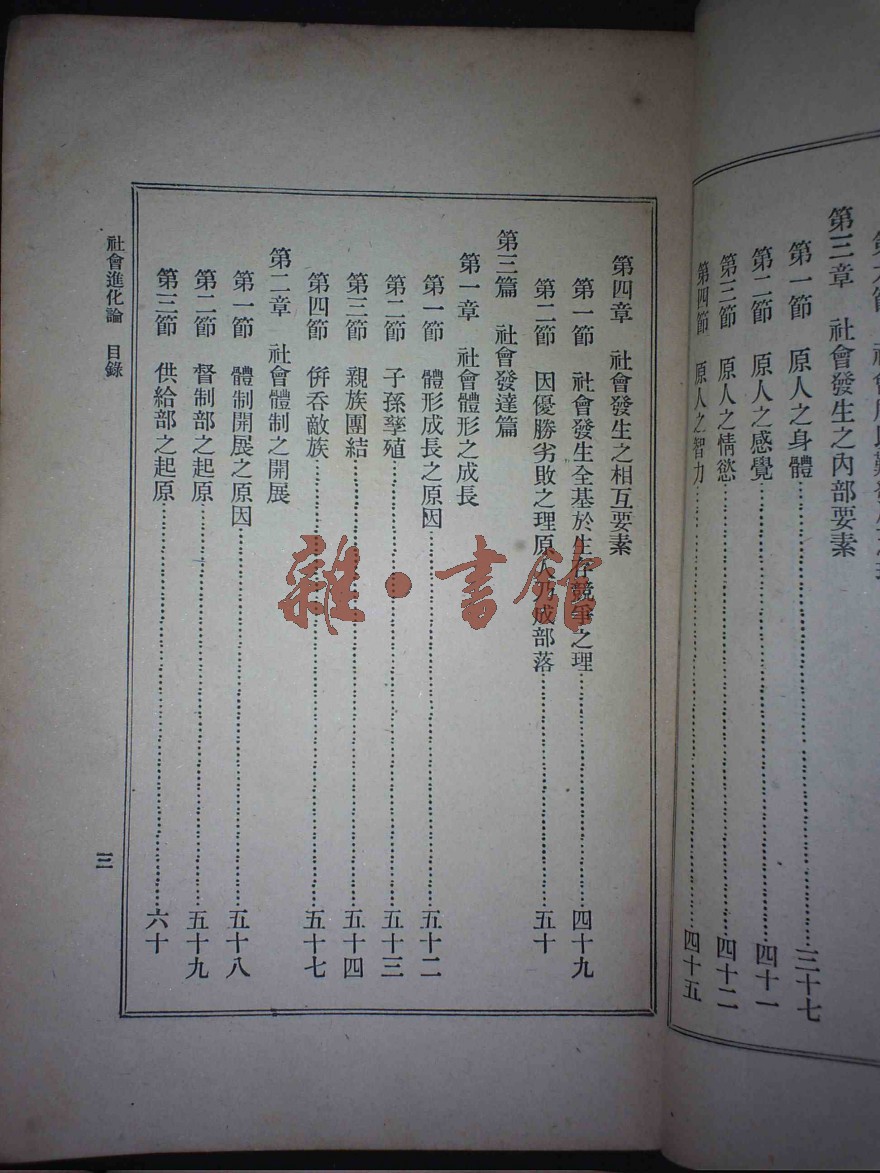 第三章　社會發生之內部要素
第一節　原人之身體……三十七
第二節　原人之感覺……四十一
第三節　原人之情慾……四十二
第四節　原人之智力……四十五
第四章　社會發生之相互要素
第一節　社會發生全基於生存競爭之理……四十九
第二節　因優勝劣敗之理原人乃成部落……五十
第三篇　社會發達篇
第一章　社會體形之成長
第一節　體形成長之原因……五十二
第二節　子孫孳殖……五十三
第三節　親族團結……五十四
第四節　併吞敵族……五十七
第二章　社會體制之開展
第一節　體制開展之原因……五十八
第二節　督制部之起原……五十九
第三節　供給部之起原……六十
社會進化論　目錄
三
雜·書館